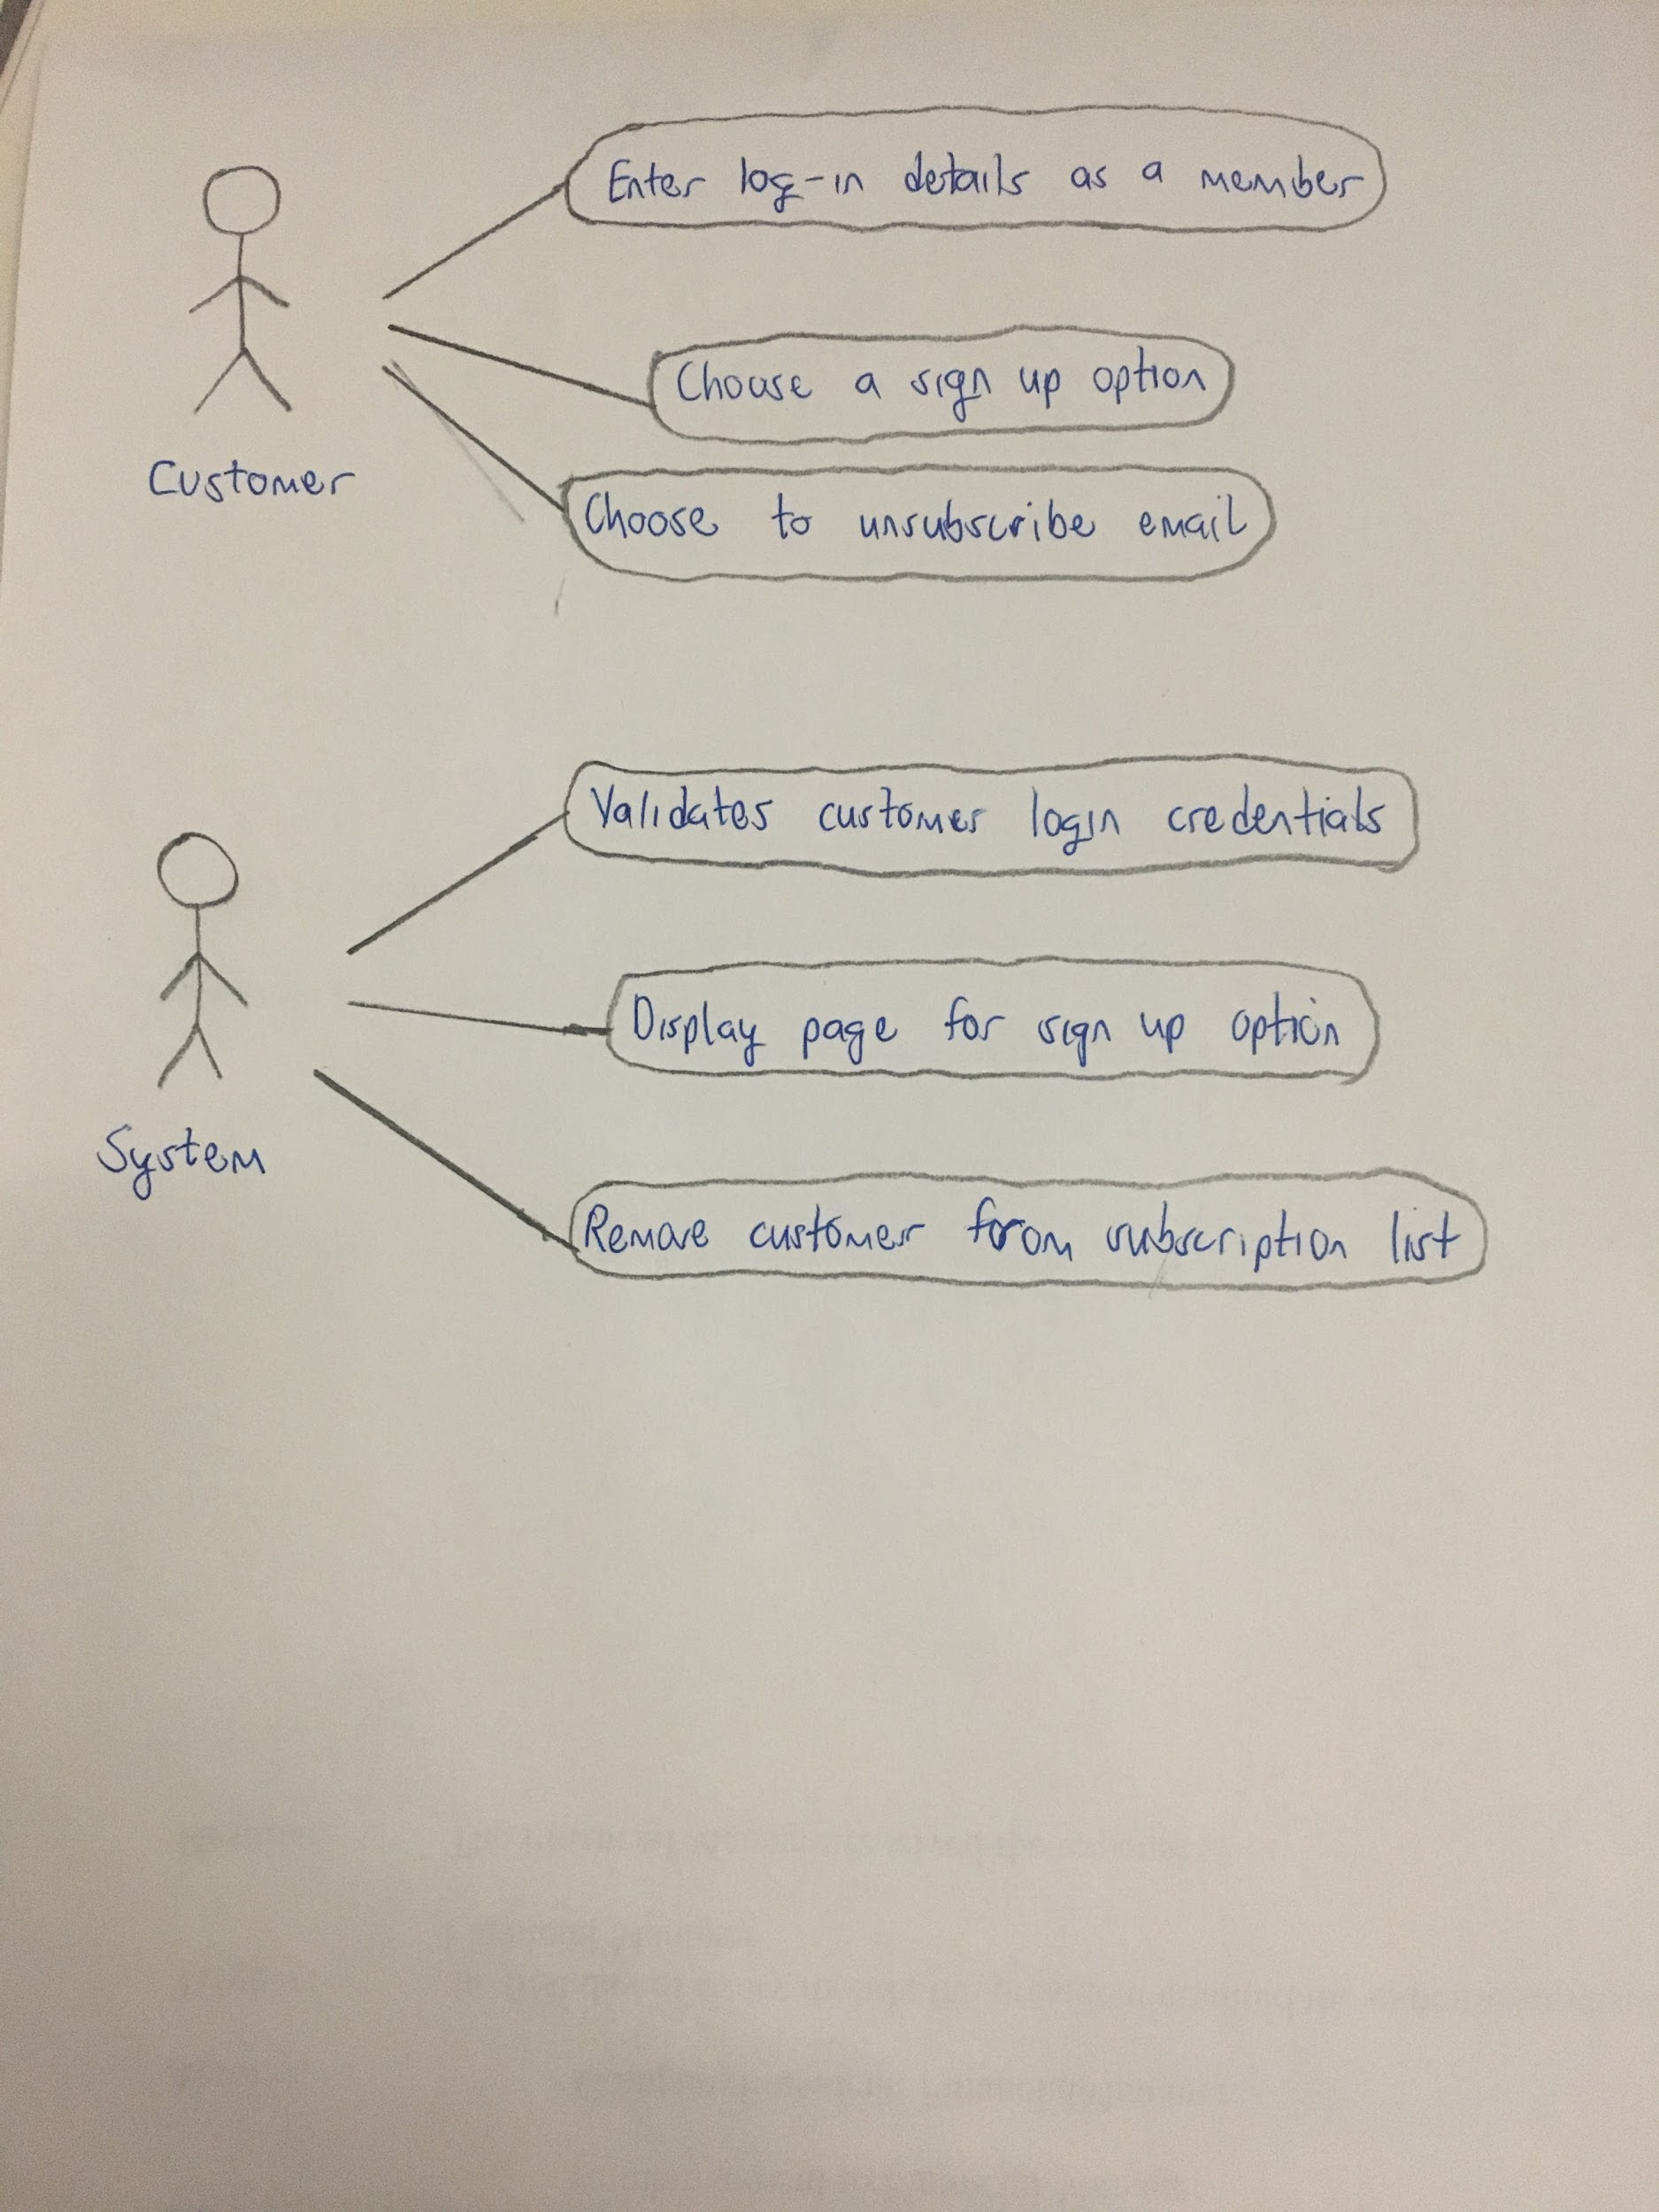 Enter log-in details as a member
Choose a sign up option
Customer
Choose to unsubscribe email
Validates customer login credentials
Display page for sign up option
System
Remove customer from subscription list